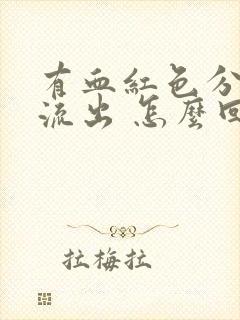 有血紅色分
流出 怎麼回
拉梅拉